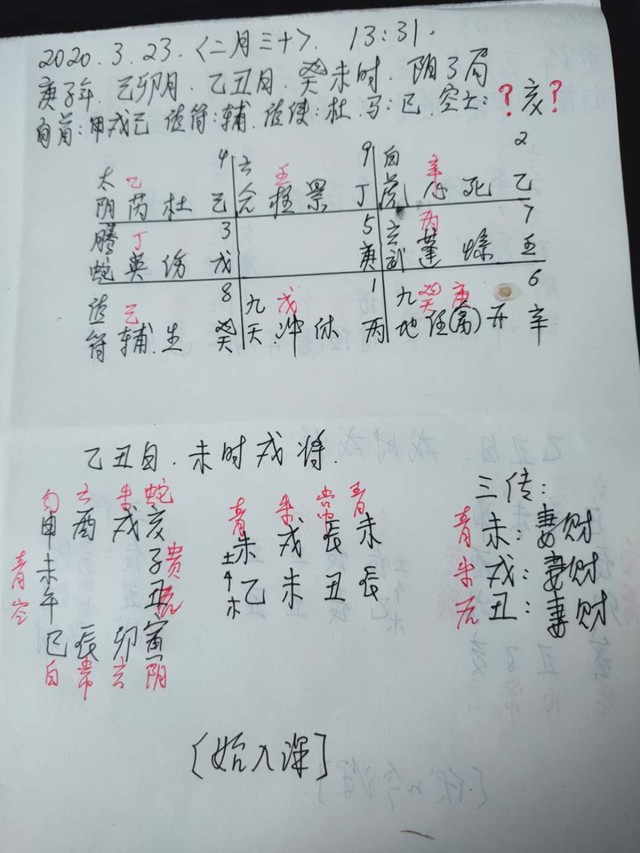 2020.3.23.<二月三十>. 13:31.
庚子年. 己卯月. 乙丑日. 癸未时. 阴3局
旬首:甲戌己 值符:辅. 值使:杜. 马:巳. 空亡:?亥?
4 9 2
太 乙 玄 壬 白 辛
阴 芮 杜 己 武 柱 景 丁 虎 心 死 乙
3 5 7
腾 丁 玄 丙
蛇 英 伤 戊 庚 武 蓬 惊 壬
8 1 6
值 己 九 戊 九 癸 庚
符 辅 生 癸 天 冲 休 丙 地 任(禽)开 辛
乙丑日. 未时戌将.
勾 玄 朱 蛇
申 酉 戌 亥
青 未 子 贵
空 午 丑
巳 辰 卯 寅
白 常 玄 阴
青 朱 常 青
未 戌 辰 未
乙 未 丑 辰
三传:
青 未: 妻财
朱 戌: 妻财
丑: 妻财
[始入课]